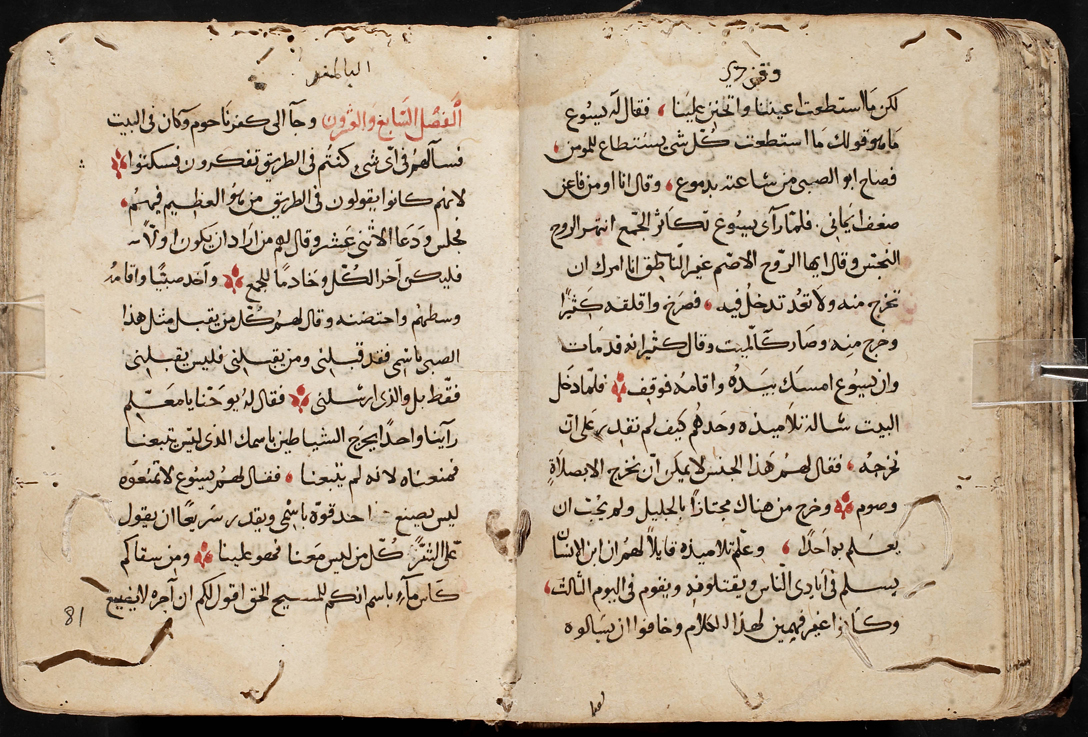 لكن ما استطعت اعيننا واتحنن علينا ، فقال له يسوع
ما هو قولك ما استطعت كل شى يستطاع للمومن ،
فصاح ابو الصبى من ساعته بدموع ، وقال انا اومن فاعن
ضعف ايمانى . فلما راى يسوع تكاثر الجمع انتهر الروح
النجس وقال ايها الروح الاصم غير الناطق انا امرك ان
تخرج منه ولا تعد تدخل فيه ، فصرخ واقلقه كثيرًا
وخرج منه وصار كالميت وقال كثير انه قد مات
وان يسوع امسك بيده واقامه فوقف فلما دخل
البيت ساله تلاميذه وحدهم كيف لم نقدر على ان
نخرجه ، فقال لهم هذا الجنس لا يمكن ان يخرج الا بصلاةٍ
وصوم وخرج من هناك مجتازًا بالجليل ولم يحب ان
يعلم به احدًا ، وعلم تلاميذه قايلاً لهم ان ابن الانسان
يسلم فى ايادى الناس ويقتلونه ويقوم فى اليوم الثالث ،
وكانوا غير فهمين لهذا الكلام وخافوا ان يسالوه
الفصل السابع والعشرون وجآ الى كفرناحوم وكان فى البيت
فسالهم فى اى شىٍ كنتم فى الطريق تفكرون فسكتوا
لانهم كانوا يقولون فى الطريق من هو العظيم فيهم ،
فجلس ودعا الاثنى عشر وقال لهم من اراد ان يكون اولاً
فليكن آخر الكل وخادمًا للجمع واخد صبيًا واقامه
وسطهم واحتضنه وقال لهم كل من يقبل مثل هذا
الصبى باسمى فقد قبلنى ومن يقبلنى فليس يقبلنى
فقط بل والذى ارسلنى فقال له يوحنا يا معلم
راينا واحدًا يخرج الشياطين باسمك الذى ليس يتبعنا
فمنعناه لانه لم يتبعنا ، فقال لهم يسوع لا تمنعوه
ليس يصنع احد قوة باسمى ويقدر سريعًا ان يقول
علىّ الشر كل من ليس معنا فهو علينا ومن سقاكم
كاس مآءٍ باسم انكم للمسيح الحق اقول لكم ان آجره لا يضيع
81